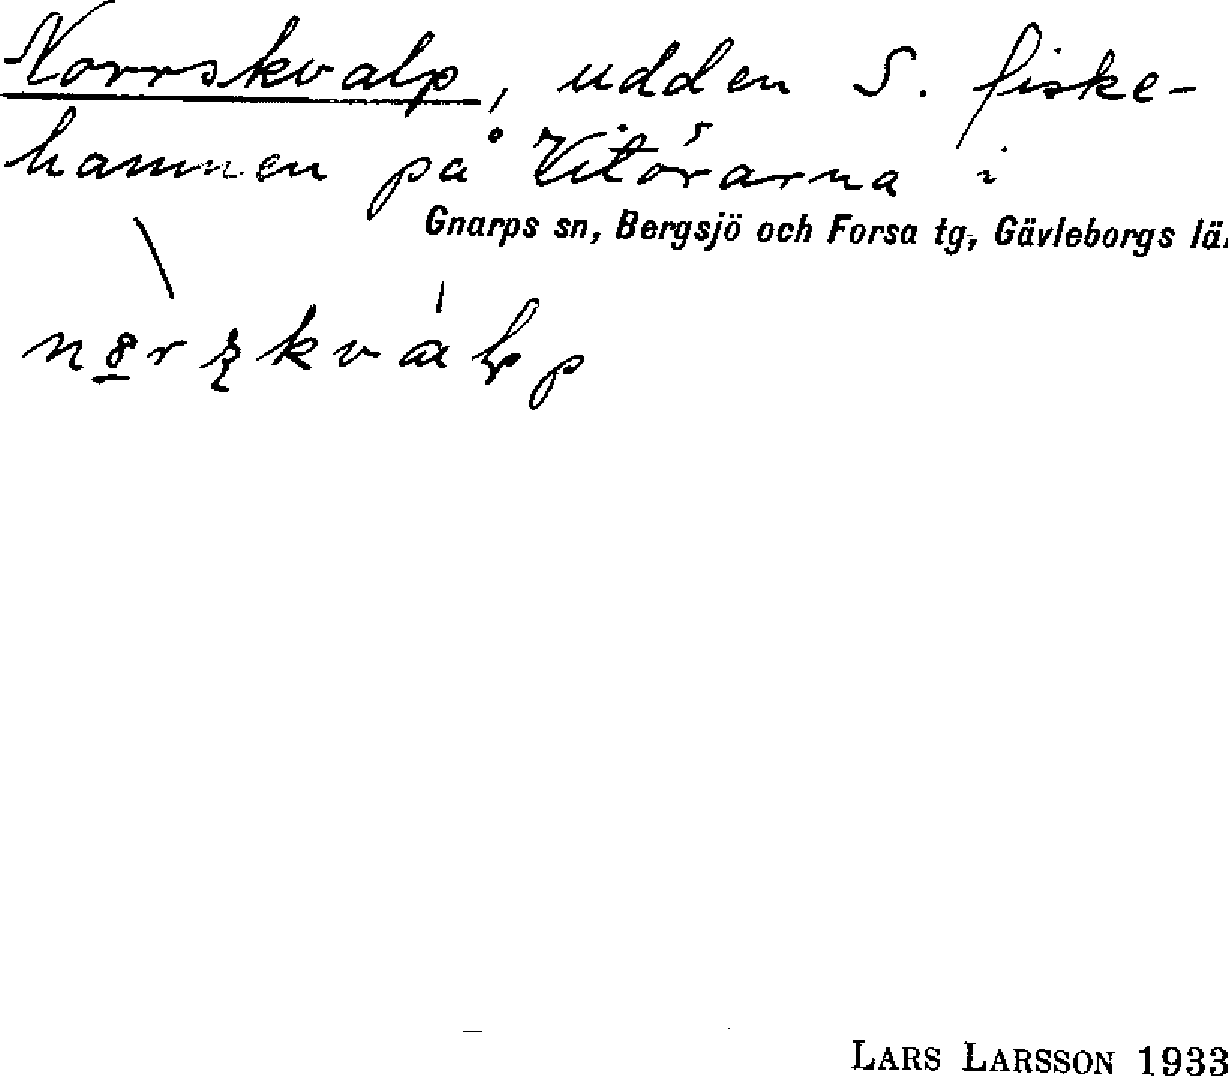 Norrskvalp, udden S. fiske-
hamnen på Vitörarna i
Gnarps sn, Bergsjö och Forsa tg, Gävleborgs lä
LARS LARSSON 1933